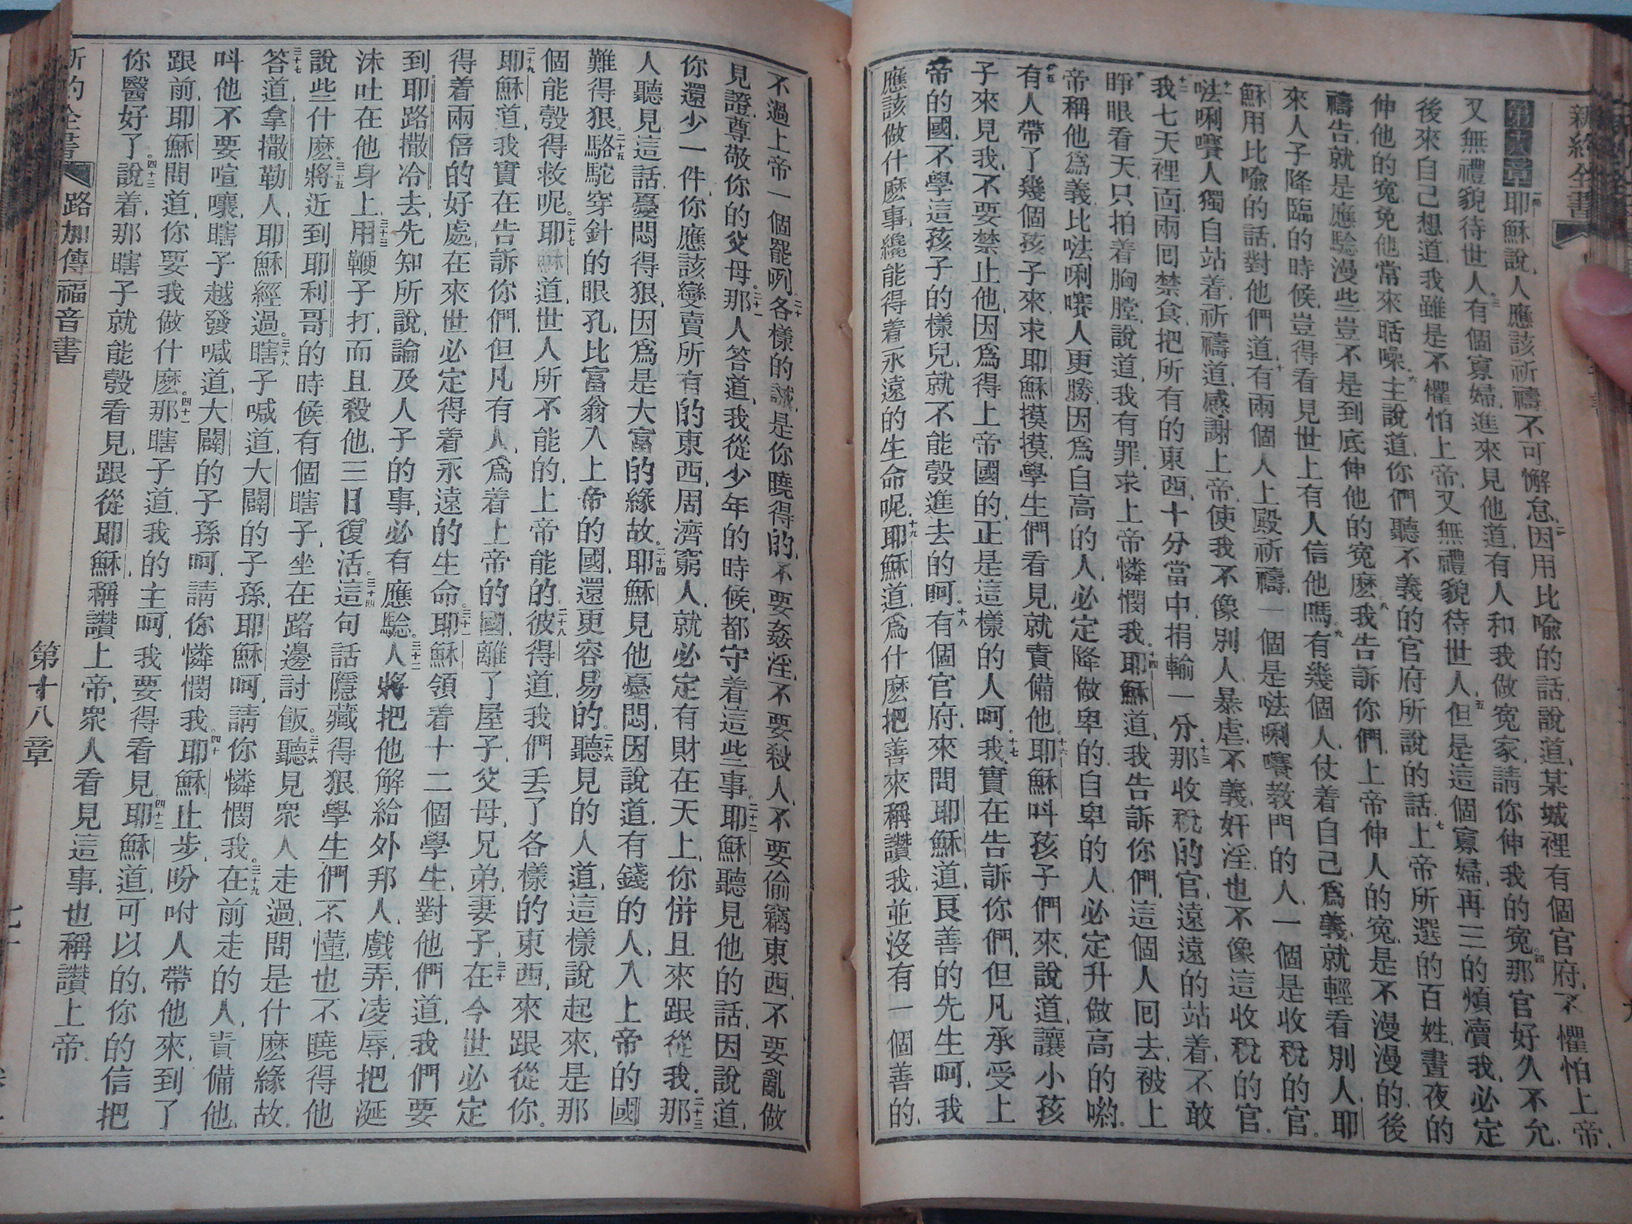 新約全書
第十八章耶穌說人應該祈禱不可懈怠因用比喩的話說道某城裡有個官府不懼怕上帝
又無禮貌待世人有個寡婦進來見他道有人和我做寃家請你伸我的寃那官好久不允
後來自己想道我雖是不懼怕上帝又無禮貌待世人但是這個寡婦再三的煩瀆我必定
伸他的寃免他常來聒噪主說道你們聽不義的官府所說的話上帝所選的百姓晝夜的
禱告就是應驗漫些豈不是到底伸他的寃麽我告訴你們上帝伸人的寃是不漫漫的後
來人子降臨的時候豈得看見世上有人信他嗎有幾個人仗着自己爲義就輕看別人耶
穌用比喩的話對他們道有兩個人上殿祈禱一個是𠵽唎㘔教門的人一個是收稅的官
𠵽唎㘔人獨自站着祈禱道感謝上帝使我不像別人暴虐不義奸淫也不像這收稅的官
我七天裡面兩回禁食把所有的東西十分當中捐輸一分那收稅的官遠遠的站着不敢
睜眼看天只拍着胸膛說道我有罪求上帝憐憫我耶穌道我告訴你們這個人回去被上
帝稱他爲義比𠵽唎㘔人更勝因爲自高的人必定降做卑的自卑的人必定升做高的喲
有人帶了幾個孩子來求耶穌摸摸學生們看見就責備他耶穌呌孩子們來說道讓小孩
子來見我不要禁止他因爲得上帝國的正是這樣的人呵我實在告訴你們但凡承受上
帝的國不學這孩子的樣兒就不能彀進去的呵有個官府來問耶穌道良善的先生呵我
應該做什麽事纔能得着永遠的生命呢耶穌道爲什麽把善來稱讚我並沒有一個善的
不過上帝一個罷咧各樣的誡是你曉得的不要姦淫不要殺人不要偷竊東西不要亂做
見證尊敬你的父母那人答道我從少年的時候都守着這些事耶穌聽見他的話因說道
你還少一件你應該變賣所有的東西周濟窮人就必定有財在天上你併且來跟從我那
人聽見這話憂悶得狠因爲是大富的緣故耶穌見他憂悶因說道有錢的人入上帝的國
難得狠駱駝穿針的眼孔比富翁入上帝的國還更容易的聽見的人道這樣說起來是那
個能彀得救呢耶穌道世人所不能的上帝能的彼得道我們丟了各樣的東西來跟從你
耶穌道我實在告訴你們但凡有人爲着上帝的國離了屋子父母兄弟妻子在今世必定
得着兩倍的好處在來世必定得着永遠的生命耶穌領着十二個學生對他們道我們要
到耶路撒冷去先知所說論及人子的事必有應驗人將把他解給外邦人戲弄凌辱把涎
沫吐在他身上用鞭子打而且殺他三日復活這句話隱藏得狠學生們不懂也不曉得他
說些什麽將近到耶利哥的時候有個瞎子坐在路邊討飯聽見衆人走過問是什麽緣故
答道拿撒勒人耶穌經過瞎子喊道大闢的子孫耶穌呵請你憐憫我在前走的人責備他
呌他不要喧嚷瞎子越發喊道大闢的子孫呵請你憐憫我耶穌止步吩咐人帶他來到了
跟前耶穌問道你要我做什麽那瞎子道我的主呵我要得看見耶穌道可以的你的信把
你醫好了說着那瞎子就能彀看見跟從耶穌稱讚上帝衆人看見這事也稱讚上帝
新約全書 路加傳福音書 第十八章 七十